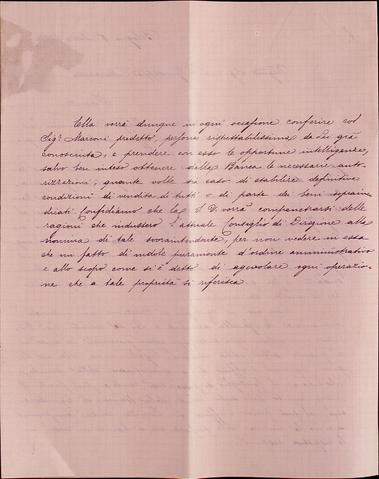 Ella vorrà dunque in ogni occasione conferire col
Sig.r Marconi predetto, persona rispettabilissima da Lei già
conosciuta, e prendere con esso le opportune intelligenze,
salvo ben inteso ottenere dalla Banca le necessarie auto-
rizzazioni, quante volte sia caso di stabilire definitive
condizioni di vendita di tutti o di parte dei beni soprain-
dicati. Confidiamo che la S. V. vorrà compenetrarsi delle
ragioni che indussero l'attuale Consiglio di Direzione alla
nomina di tale sovraintendente, per non vedere in essa
che un fatto di indole puramente d'ordine amministrativo
e allo scopo come si è detto di agevolare ogni operazio-
ne che a tale proprietà si riferisca.